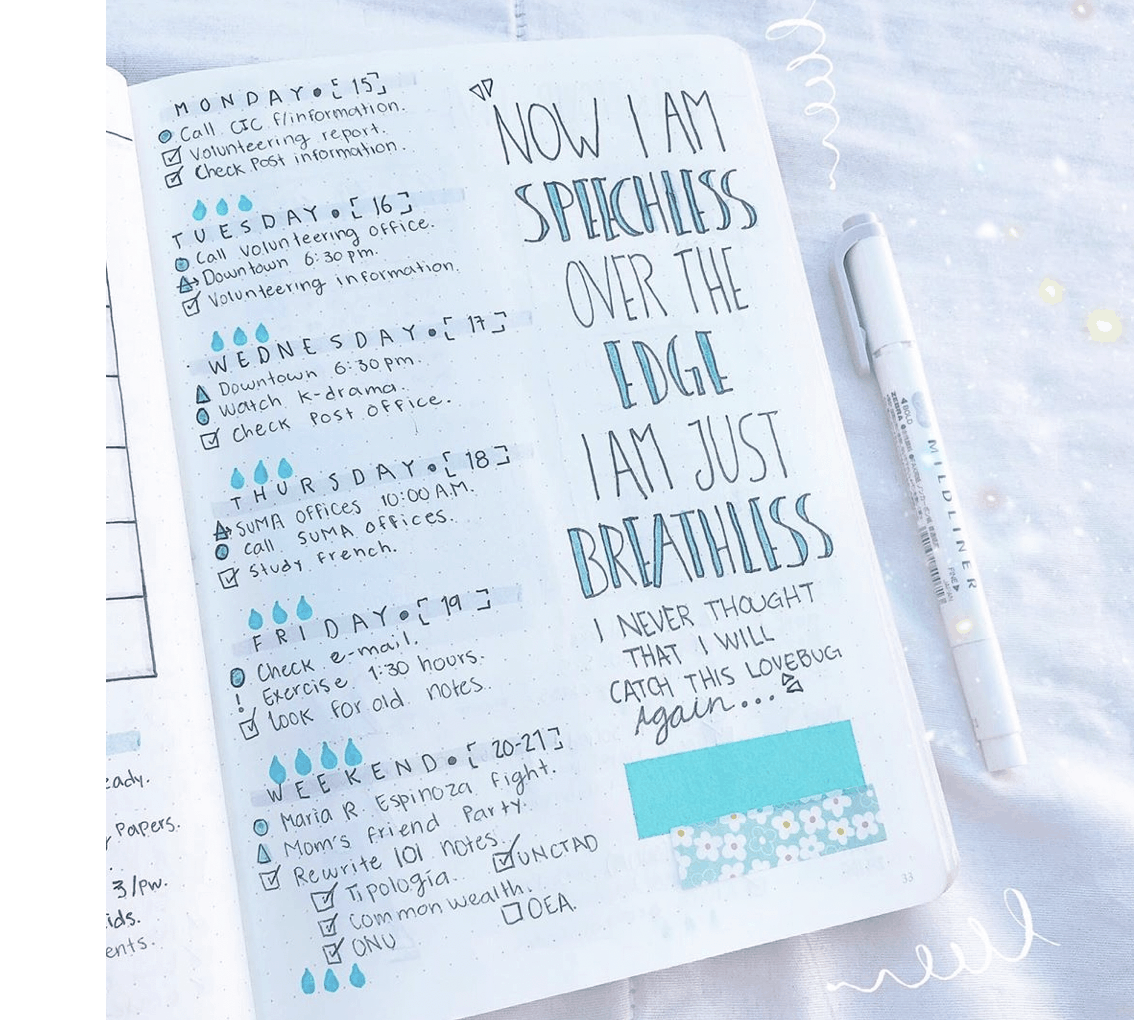 MONDAY • [15]
Call CIC f/information.
Volunteering report.
Check Post information.
TUESDAY • [16]
Call Volunteering office.
Downtown 6:30 pm.
Volunteering information.
WEDNESDAY • [17]
Downtown 6:30 pm.
Watch k-drama.
Check Post Office.
THURSDAY • [18]
SUMA offices 10:00 A.M.
Call SUMA offices.
Study french.
FRIDAY • [19]
Check e-mail.
! Exercise 1:30 hours.
Look for old notes.
WEEKEND • [20-21]
Maria R. Espinoza fight.
Mom's friend Party.
Rewrite 101 notes.
Tipología.
UNCTAD
Common wealth.
OEA.
ONU
NOW I AM
SPEECHLESS
OVER THE
EDGE
I AM JUST
BREATHLESS
I NEVER THOUGHT
THAT I WILL
CATCH THIS LOVEBUG
Again...
33
eady.
Papers.
3/pw.
ids.
ents.
BOLD
ZEBRA
MILDLINER
FINE
JAPAN